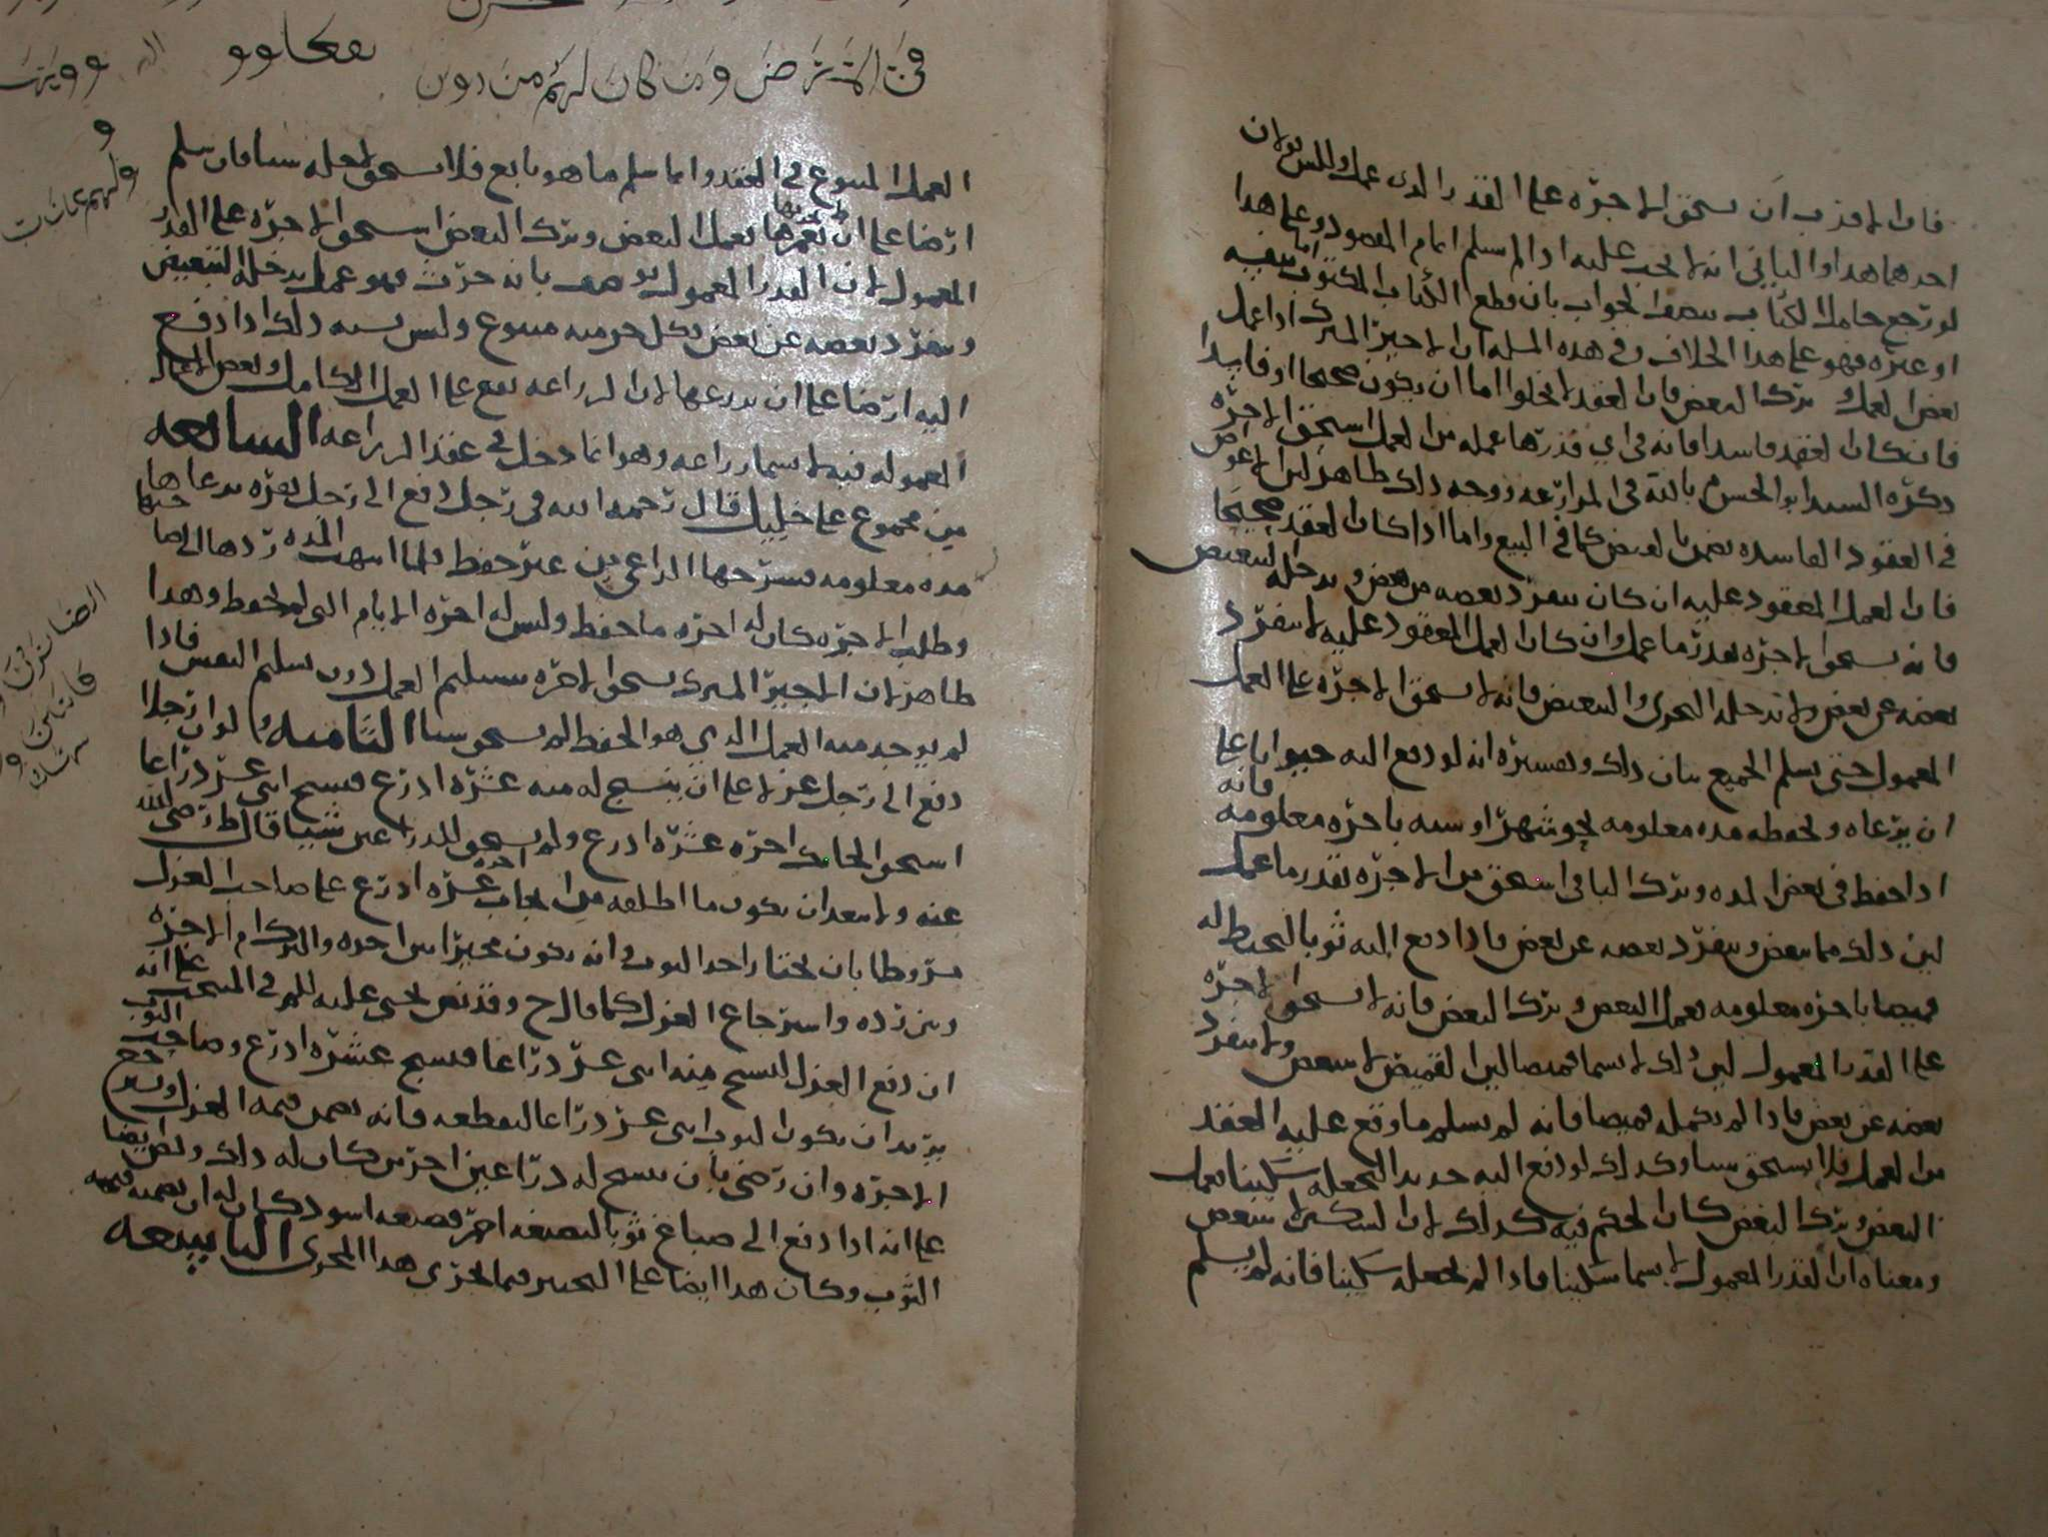 فان الاقرب ان يستحق الاجره على القدر الذي عمل وليس لان
احدهما هذا والثاني انه لا يجب عليه اذا لم يسلم اتمام المقصود وعلى هذا
لو رجع حامل الكتاب ببعض الجواب بان قطع الكتاب المكتوب اما بنفسه
او غيره فهو على هذا الخلاف وفي هذه المسله ان الاجير المشترك اذا عمل
بعض العمل وترك البعض فان العقد لا يخلوا اما ان يكون صحيحا او فاسدا
فان كان العقد فاسدا فانه في اي قدر ها عمله من العمل استحق الاجره
ذكره السيد ابو الحسن بالله في المزارعه ووجه ذلك ظاهر لان الاعواض
في العقود الفاسده بعضها كما في البيع واما اذا كان العقد صحيحا
فان العمل المعقود عليه ان كان ينفرد بعضه من بعض ويدخله التبعيض
فانه يستحق الاجره بقدر ما عمل وان كان العمل المعقود عليه لا ينفرد
بعضه عن بعض ولا تدخله التجزي والتبعيض فانه لا يستحق الاجره على العمل
المعمول حتى يسلم الجميع بيان ذلك وتفسيره انه لو دفع اليه حيوانا على
ان يرعاه ويحفظه مده معلومه نحو شهرا او سنه باجره معلومه فانه
اذا حفظ في بعض المده وترك الباقي استحق من الاجره بقدر ما عمل
لان ذلك مما يتبعض وينفرد بعضه عن بعض فاذا دفع اليه ثوبا ليخيط له
قميصا باجره معلومه فعمل البعض وترك البعض فانه لا يستحق الاجره
على القدر المعمول لان ذلك لا يسما قميصا لان القميص لا يتبعض ولا ينفرد
بعضه عن بعض فاذا لم يكمله قميصا فانه لم يسلم ما وقع عليه العقد
من العمل فلا يستحق شيا وكذلك لو دفع اليه حديدا ليجعله سكينا فعمل
البعض وترك البعض كان الحكم فيه كذلك لان السكين لا يتبعض
ومعناه ان القدر المعمول لا يسما سكينا فاذا لم يجعله سكينا فانه لم يسلم
في المترض ومن كان لهم من دون
العمل المتبوع في العقد وانما سلم ما هو تابع فلا يستحق لاجله شيا فان سلم
ارضا على ان يعمرها فعمل البعض وترك البعض استحق الاجره على القدر
المعمول لان القدر المعمول يوصف بانه حرث فهو عمل يدخله التبعيض
وينفرد بعضه عن بعض فكل جز منه متبوع وليس يشبه ذلك اذا دفع
اليه ارضا على ان يزرعها لان الزراعه تقع على العمل الكامل وبعض الاعمال
المعموله فيه لا يسما زراعه وهو انما دخل في عقد الزراعه السابعه
من مجموع علي خليل قال رحمه الله في رجل دفع الى رجل بقره يرعاها
مده معلومه فسرحها الراعي من غير حفظ فلما انتهت المده ردها الى صاحبها
وطلب الاجره كان له اجره ما حفظ وليس له اجره الايام التي لم يحفظ وهذا
ظاهر لان الاجير المشترك يستحق الاجره بتسليم العمل دون تسليم النفس فاذا
لم يوجد منه العمل الذي هو الحفظ لم يستحق شيا الثامنه لو ان رجلا
دفع الى رجل غزلا على ان ينسج له منه عشره اذرع فنسج اثني عشر ذراعا
استحق الحائك اجره عشره اذرع ولم يستحق للذراعين شيا قال ط رضي الله
عنه ولا يبعد ان يكون ما اطلقه من ايجاب اجره عشره اذرع على صاحب الغزل
مشروطا بان يختار اخذ الثوب وانه يكون مخيرا بين اخذه والتزام الاجره
وبين رده واسترجاع الغزل كما قال ح وقد نص يحيى عليه السلم في المنتخب على انه
ان دفع الغزل لينسج منه اثني عشر ذراعا فنسج عشره اذرع وصاحب الثوب
يريد ان يكون الثوب اثني عشر ذراعا ليقطعه فانه يضمن قيمه الغزل
الاجره وان رضي بان ينسج له ذراعين اخرين كان له ذلك ونص ايضا
على انه اذا دفع الى صباغ ثوبا ليصبغه احمر فصبغه اسود كان له ان يضمنه قيمه
الثوب وكان هذا ايضا على التخيير فيما يجري هذا المجرى التاسعه